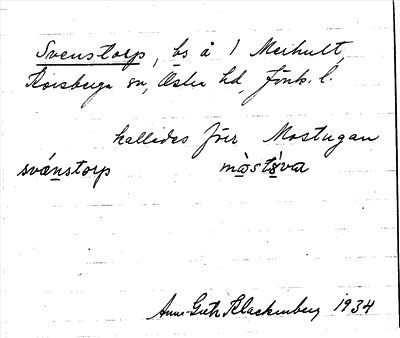 Svenstorp, bs å 1 Meihult,
Korsberga sn, Östra hd, Jönk. l.
kallades förr Mostugan
svánstorp mòstùvạ
Anna-Greta Blackenberg 1934